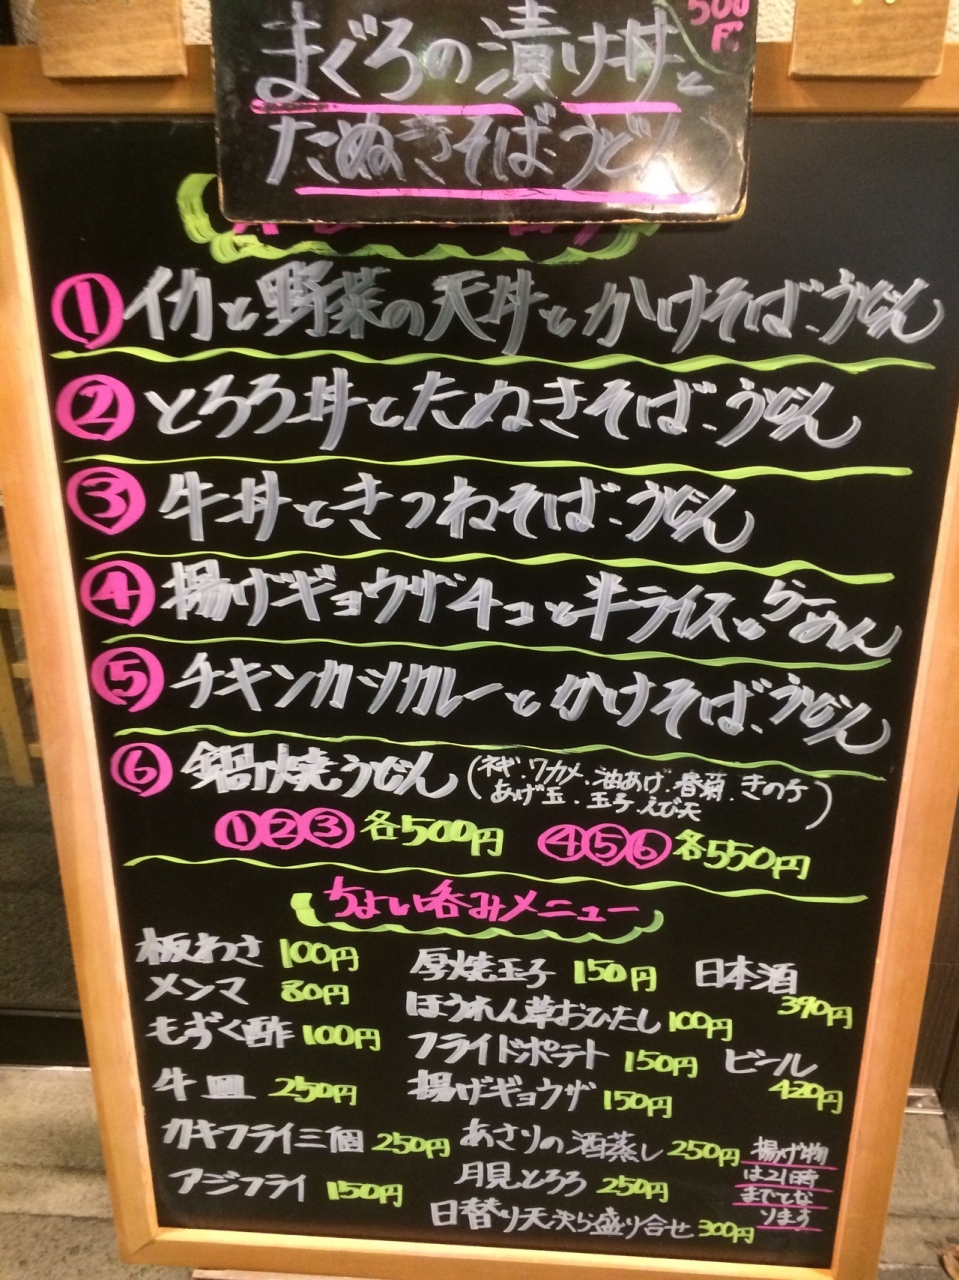 500円
まぐろの漬け丼と
たぬきそば、うどん
①イカと野菜の天丼とかけそば、うどん
②とろろ丼とたぬきそば、うどん
③牛丼ときつねそば、うどん
④揚げギョウザ4コと半ライスとらーめん
⑤チキンカツカレーとかけそば、うどん
⑥鍋焼うどん(ネギ.ワカメ.油あげ.春菊.きのこ
あげ玉.玉子.えび天)
①②③各500円 ④⑤⑥各550円
ちょい呑みメニュー
板わさ 100円
メンマ 80円
もずく酢 100円
牛皿 250円
カキフライ三個 250円
アジフライ 150円
厚焼玉子 150円
ほうれん草おひたし 100円
フライドポテト 150円
揚げギョウザ 150円
あさりの酒蒸し 250円
月見とろろ 250円
日替り天ぷら盛り合せ 300円
日本酒
390円
ビール
420円
揚げ物
は21時
までとな
ります